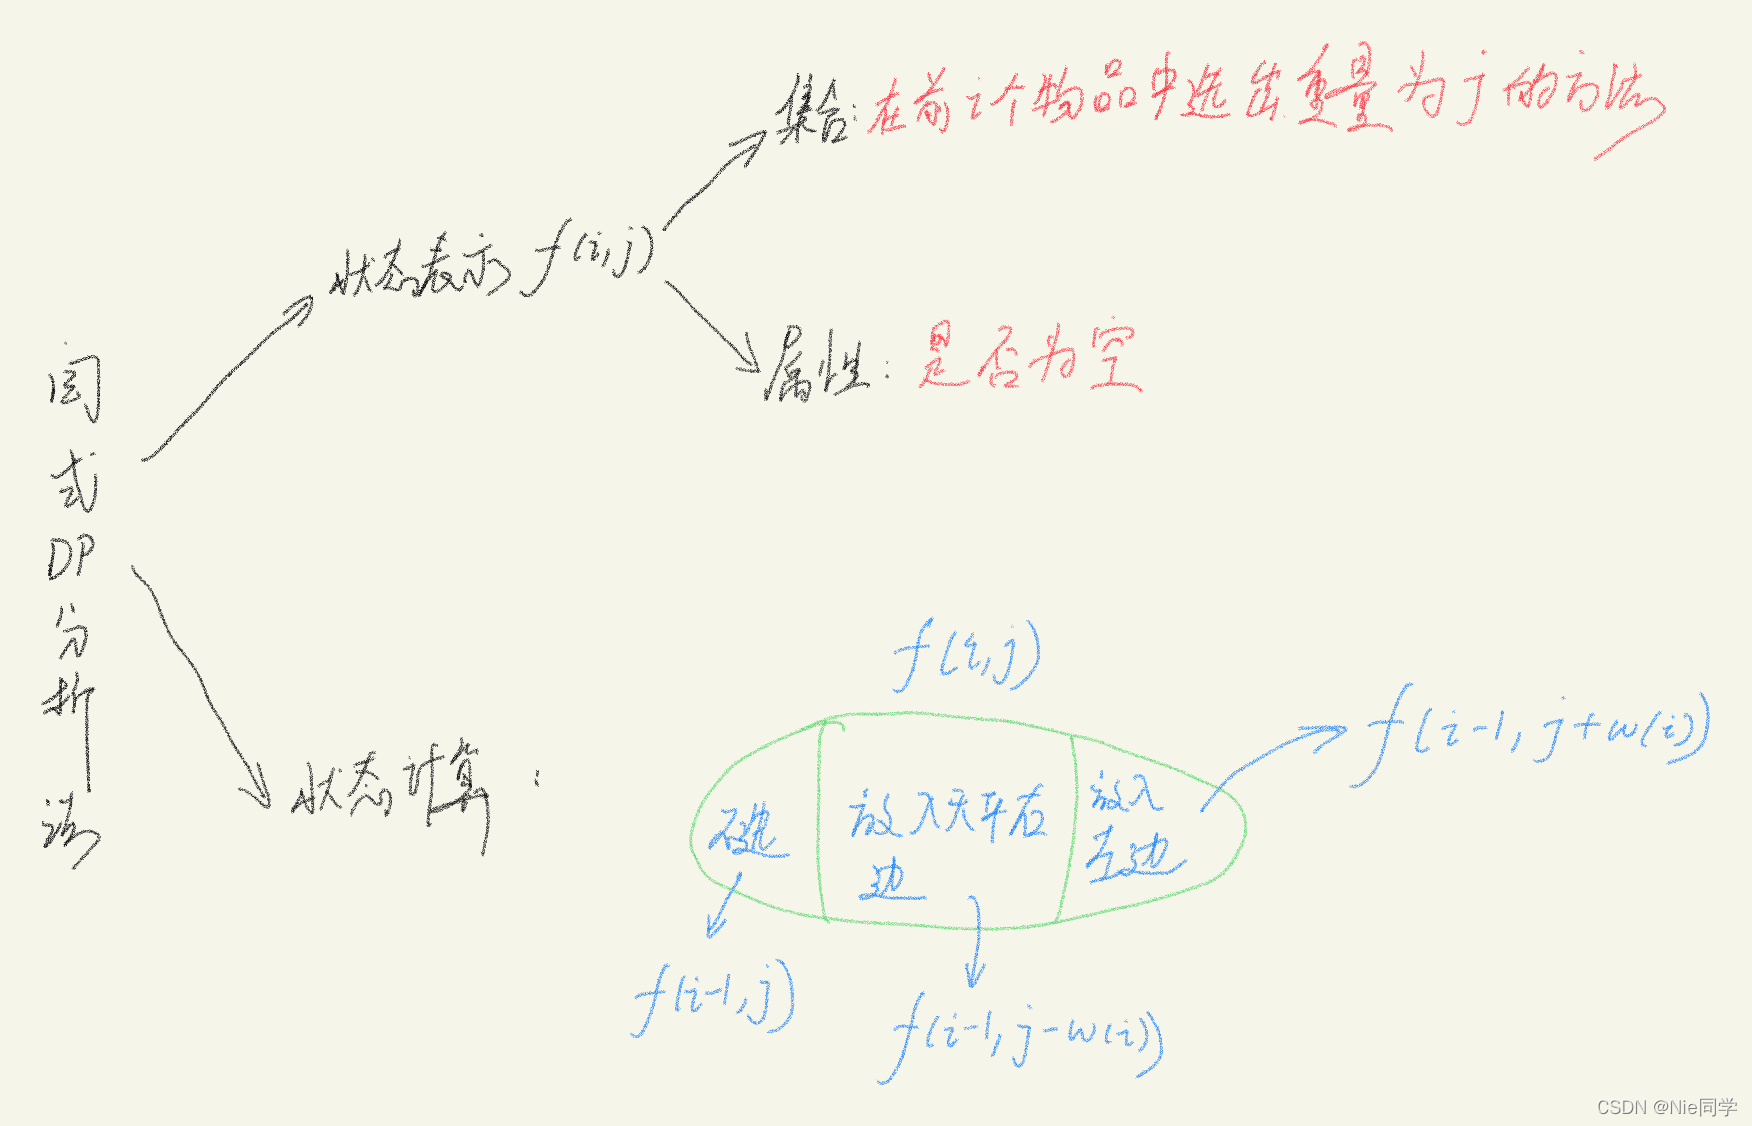 闫式DP分析法
状态表示 f(i,j)
集合: 在前i个物品中选出重量为j的方法
属性: 是否为空
状态计算:
f(i,j)
不选
放入天平右
边
放入
左边
f(i-1,j)
f(i-1,j-w(i))
f(i-1,j+w(i))
CSDN @Nie同学